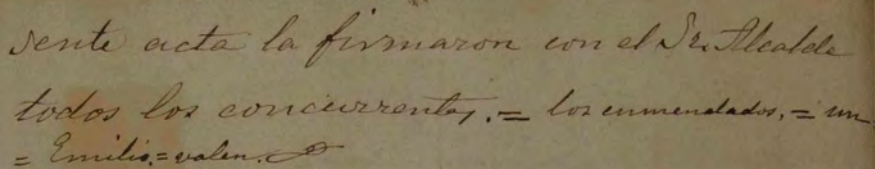 sente acta la firmaron con el Sr. Alcalde
todos los concurrentes. = los enmendados, = un
= Emilio. = valen.